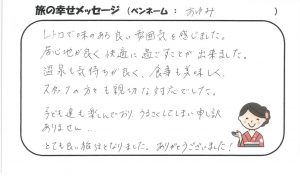 旅の幸せメッセージ（ペンネーム： あゆみ ）
レトロで味のある良い雰囲気を感じました。
居心地が良く快適に過ごすことが出来ました。
温泉も気持ちが良く、食事も美味しく、
スタッフの方々も親切な対応でした。
子ども達も楽しんでおり、うるさくしてしまい申し訳
ありません…
とても良い旅行となりました。ありがとうございました！